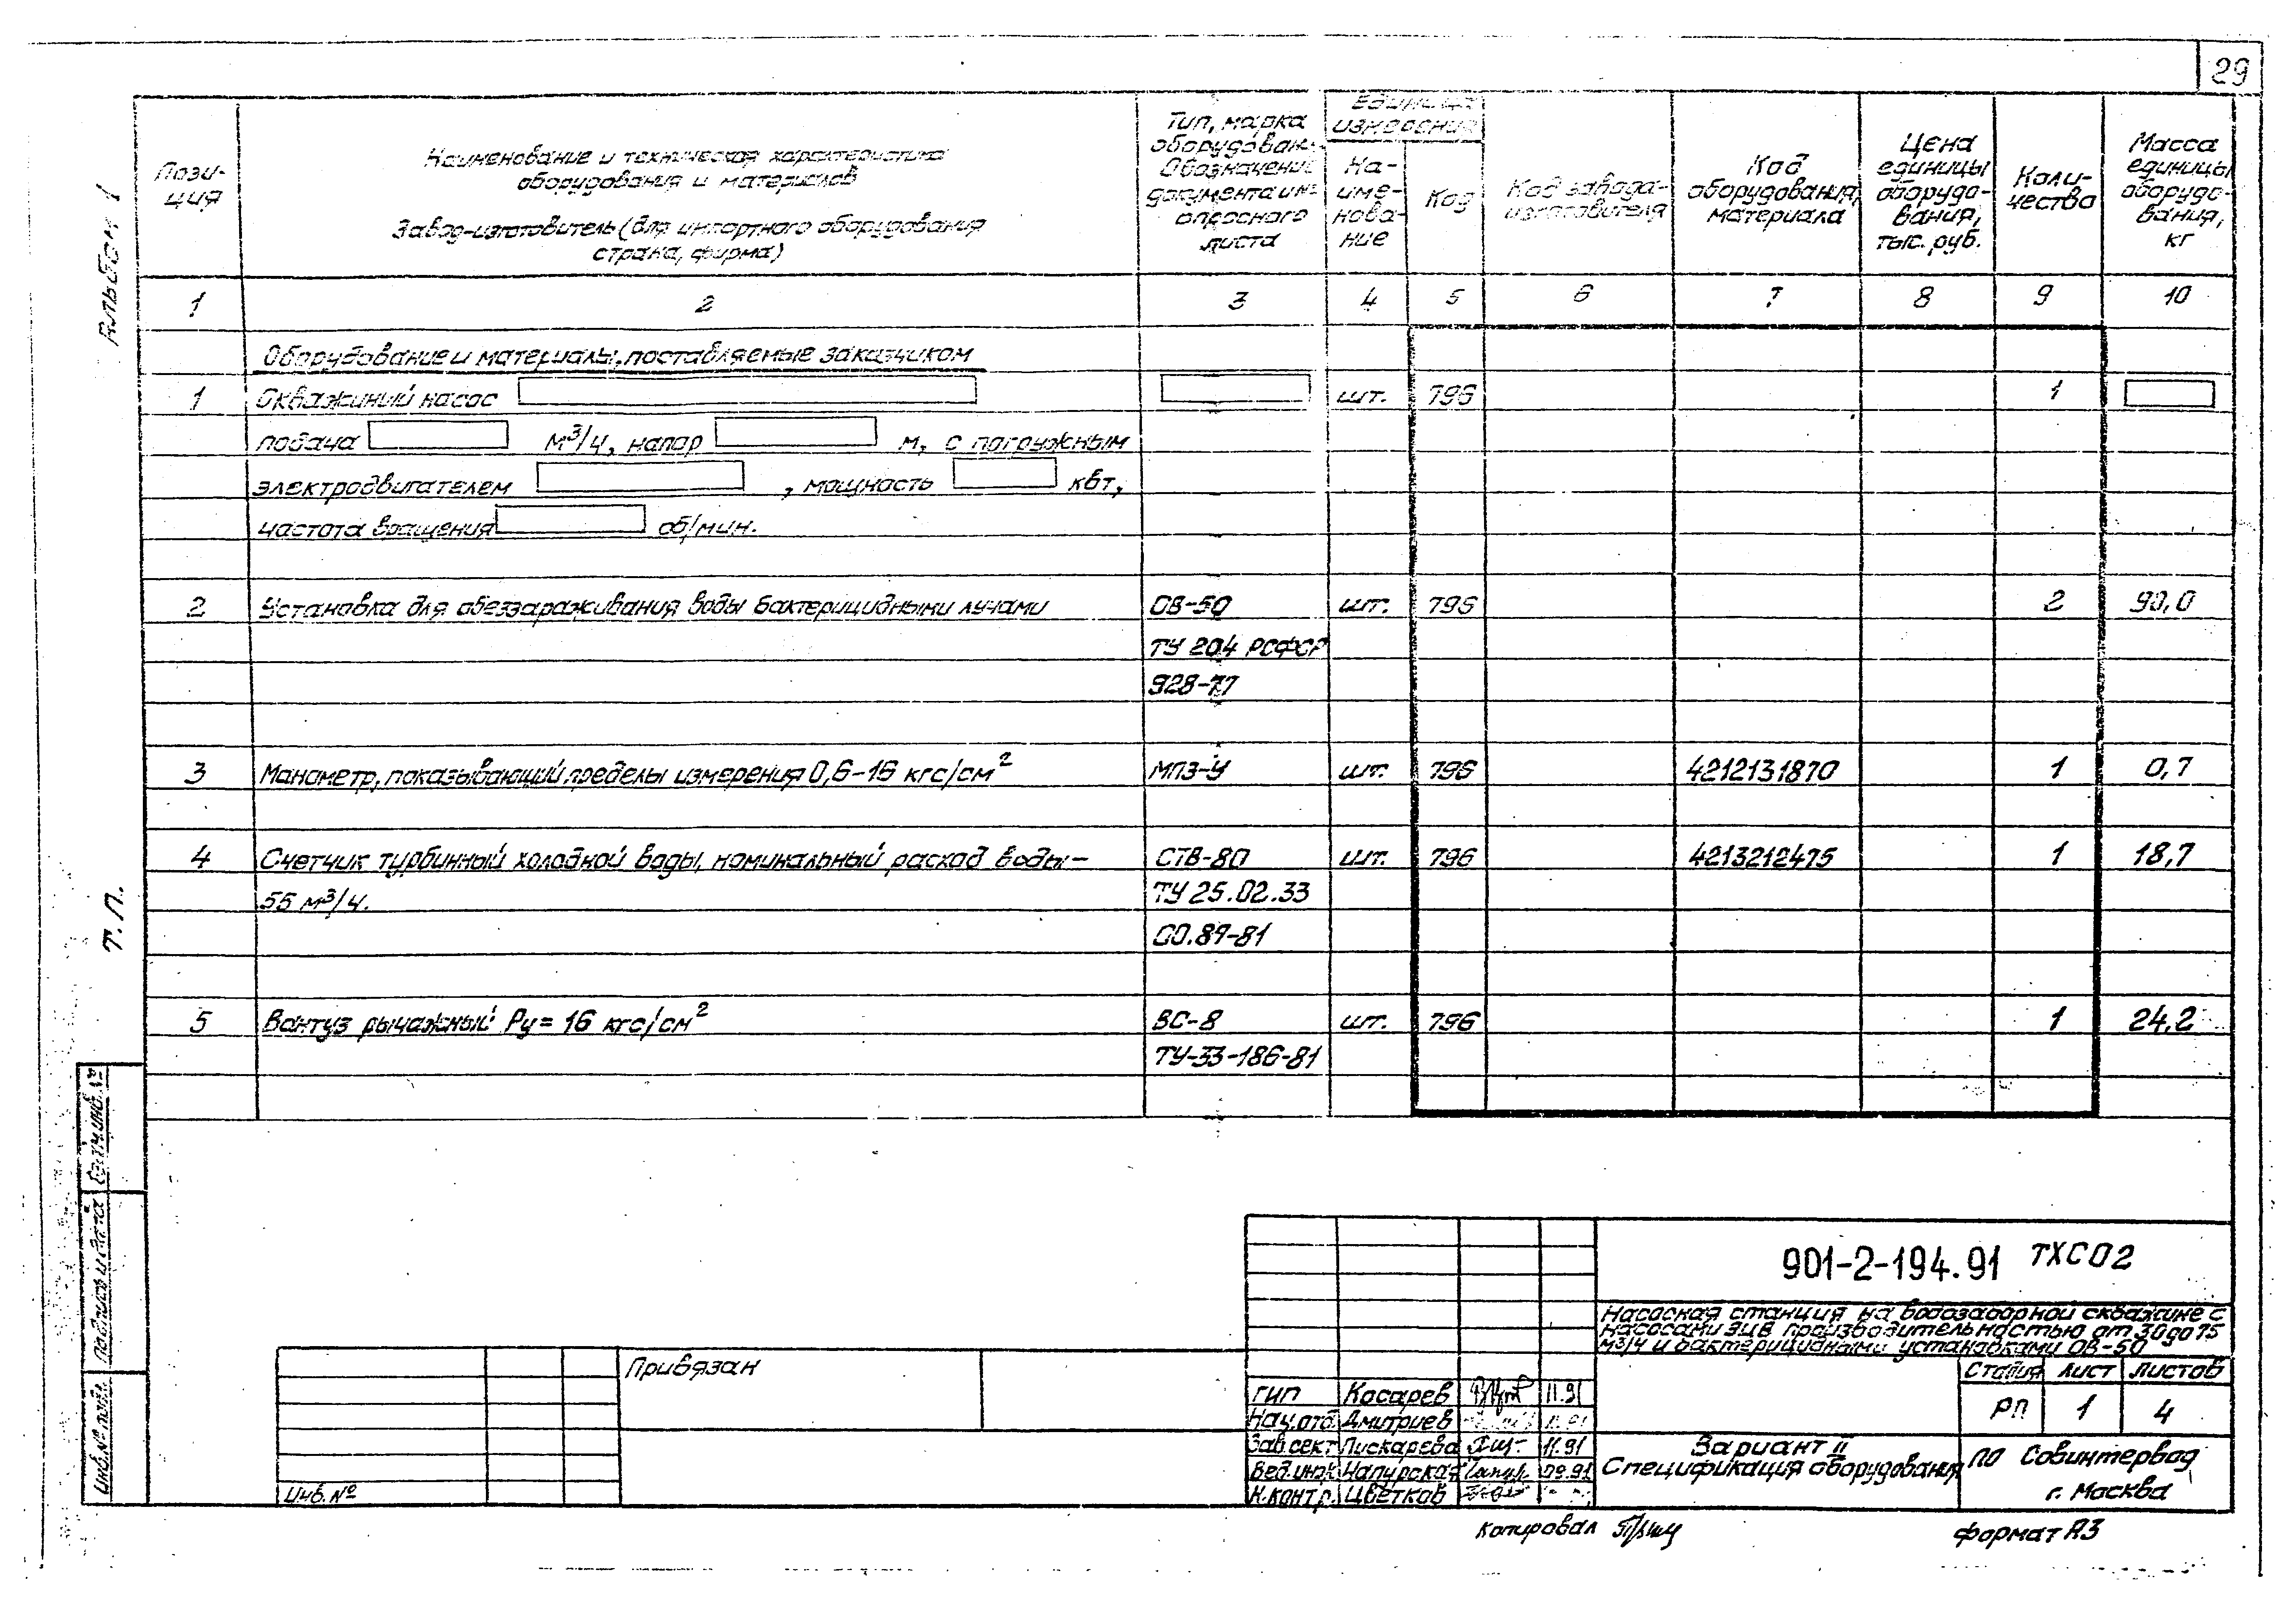 29
Альбом 1
Т. П.
Пози-
ция
Наименование и техническая характеристика
оборудования и материалов
Завод-изготовитель (для импортного оборудования
страна, фирма)
Тип, марка
оборудован.
Обозначение
документа и
опросного
листа
Единица
измерения
На-
име-
нова-
ние
Код
Код завода-
изготовителя
Код
оборудования,
материала
Цена
единицы
оборудо-
вания,
тыс. руб.
Коли-
чество
Масса
единицы
оборудо-
вания,
кг
1 2 3 4 5 6 7 8 9 10
Оборудование и материалы, поставляемые заказчиком
1 Скважиный насос шт. 796 1
подача м³/ч, напор м, с погружным
электродвигателем , мощность квт,
частота вращения об/мин.
2 Установка для обеззараживания воды бактерицидными лучами ОВ-50 шт. 796 2 90,0
ТУ 204 РСФСР
928-77
3 Манометр, показывающий, пределы измерения 0,6-16 кгс/см² МП3-У шт. 796 4212131870 1 0,7
4 Счетчик турбинный холодной воды, номинальный расход воды- СТВ-80 шт. 796 4213212475 1 18,7
55 м³/ч. ТУ 25.02.33
00.89-81
5 Вантуз рычажный Ру= 16 кгс/см² ВС-8 шт. 796 1 24,2
ТУ-33-186-81
Взам. инв. №
Подпись и дата
Инв. № подл.
Привязан
Инв. №
901-2-194.91 ТХСО2
Насосная станция на водозаборной скважине с
насосами ЭЦВ производительностью от 30 до 75
м³/ч и бактерицидными установками ОВ-50
Стадия Лист Листов
РП 1 4
ГИП Косарев 11.91
Нач.отд. Дмитриев 11.91
Зав.сект. Пискарева 11.91
Вед.инж. Чапурская 09.91
Н.контр. Цветков
Вариант II
Спецификация оборудования
ПО Совинтервод
г. Москва
Копировал
Формат А3